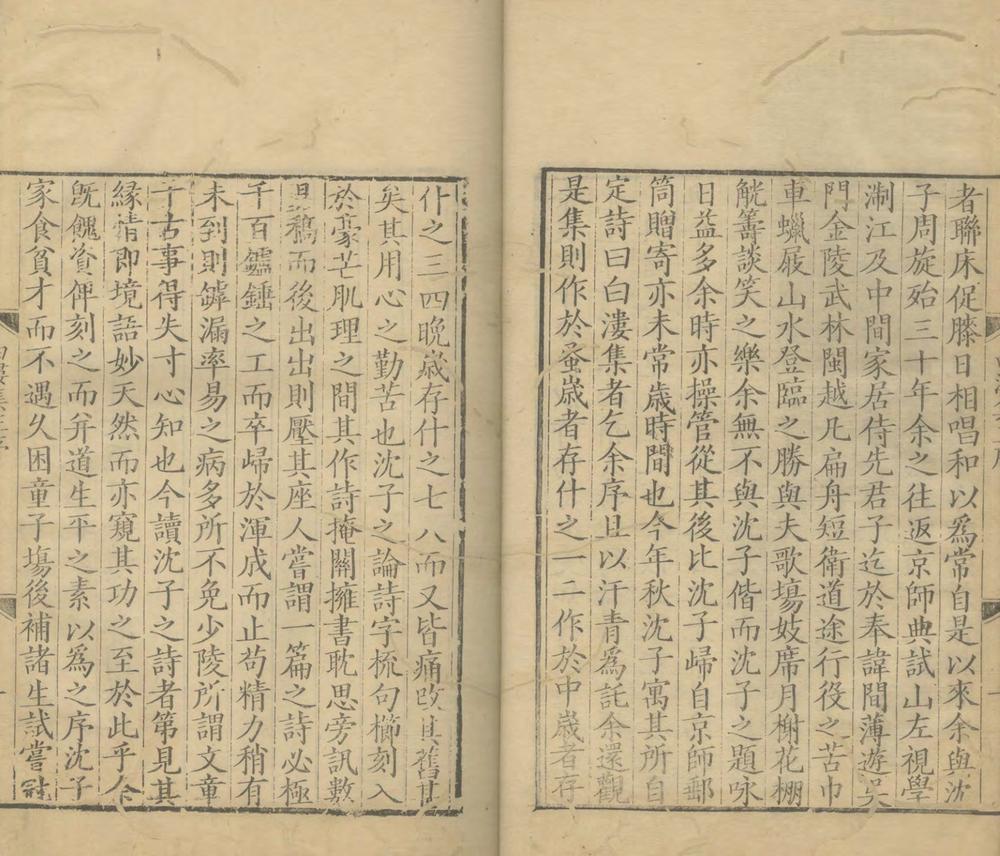 者聯床促膝日相唱和以爲常自是以來余與沈
子周旋殆三十年余之往返京師典試山左視學
淛江及中間家居侍先君子迄於奉諱間薄遊吳
門金陵武林閩越凡扁舟短衛道途行役之苦巾
車蠟屐山水登臨之勝與夫歌塲妓席月榭花棚
觥籌談笑之樂余無不與沈子偕而沈子之題咏
日益多余時亦操管從其後比沈子歸自京師郵
筒贈寄亦未常歲時間也今年秋沈子寓其所自
定詩曰白漊集者乞余序且以汗青爲託余還觀
是集則作於蚤嵗者存什之一二作於中嵗者存
什之三四晩嵗存什之七八而又皆痛改其舊
矣其用心之勤苦也沈子之論詩字梳句櫛刻入
於豪芒肌理之間其作詩掩關擁書耽思旁訊數
易稿而後出出則壓其座人嘗謂一篇之詩必極
千百鑪錘之工而卒歸於渾成而止苟精力稍有
未到則罅漏率易之病多所不免少陵所謂文章
千古事得失寸心知也今讀沈子之詩者第見其
緣情即境語妙天然而亦窺其功之至於此乎余
旣醵資俾刻之而弁道生平之素以爲之序沈子
家食貧才而不遇久困童子塲後補諸生試嘗冠